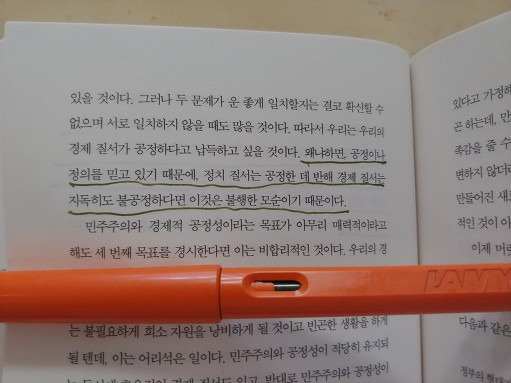 있을 것이다. 그러나 두 문제가 운 좋게 일치할지는 결코 확신할 수
없으며 서로 일치하지 않을 때도 많을 것이다. 따라서 우리는 우리의
경제 질서가 공정하다고 납득하고 싶을 것이다. 왜냐하면, 공정이나
정의를 믿고 있기 때문에, 정치 질서는 공정한 데 반해 경제 질서는
지독히도 불공정하다면 이것은 불행한 모순이기 때문이다.
민주주의와 경제적 공정성이라는 목표가 아무리 매력적이라고
해도 세 번째 목표를 경시한다면 이는 비합리적인 것이다. 우리의 경
LAMY
는 불필요하게 희소 자원을 낭비하게 될 것이고 빈곤한 생활을 하게
될 텐데, 이는 어리석은 일이다. 민주주의와 공정성이 적당히 유지되
있다고 가정해
곤 하는데, 만
족감을 줄 수
변하지 않더라
만들어진 새로
적인 것이 아
이제 머릿
다음과 같은
정부의 형태